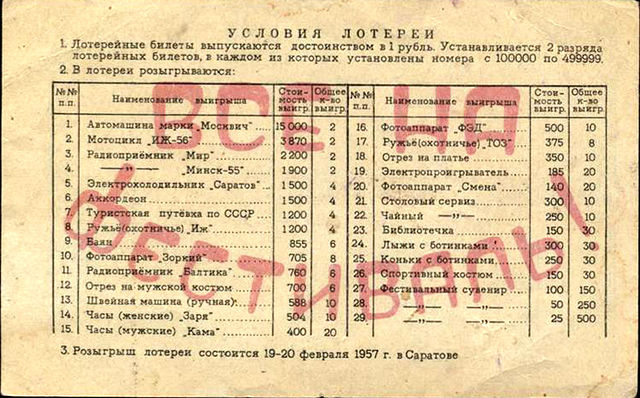 УСЛОВИЯ ЛОТЕРЕИ
1. Лотерейные билеты выпускаются достоинством в 1 рубль. Устанавливается 2 разряда
лотерейных билетов, в каждом из которых установлены номера с 100000 по 499999.
2. В лотереи розыгрываются:
№№ п.п. Наименование выигрыша Стои-мость выигр. Общее к-во выигр.
1. Автомашина марки „Москвич" 15 000 2
2. Мотоцикл „ИЖ-56" 3 870 2
3. Радиоприёмник „Мир" 2 200 2
4. —„— „Минск-55" 1 900 2
5. Электрохолодильник „Саратов" 1 500 4
6. Аккордеон 1 500 4
7. Туристская путёвка по СССР 1 200 4
8. Ружьё(охотничье) „Иж" 1 200 4
9. Баян 855 6
10. Фотоаппарат „Зоркий" 705 8
11. Радиоприёмник „Балтика" 760 6
12. Отрез на мужской костюм 700 6
13. Швейная машина (ручная) 588 10
14. Часы (женские) „Заря" 504 10
15. Часы (мужские) „Кама" 400 20
№№ п.п. Наименование выигрыша Стои-мость выигр. Общее к-во выигр.
16. Фотоаппарат „ФЭД" 500 10
17. Ружьё(охотничье) „ТОЗ" 375 8
18. Отрез на платье 350 10
19. Электропроигрыватель 185 20
20. Фотоаппарат „Смена" 140 20
21. Столовый сервиз 300 10
22. Чайный —„— 250 10
23. Библиотечка 150 30
24. Лыжи с ботинками 300 30
25. Коньки с ботинками 250 30
26. Спортивный костюм 150 30
27. Фестивальный сувенир 100 150
28. —„— —„— 50 250
29. —„— —„— 25 500
ВСЕ НА
ФЕСТИВАЛЬ!
3. Розыгрыш лотереи состоится 19-20 февраля 1957 г. в Саратове